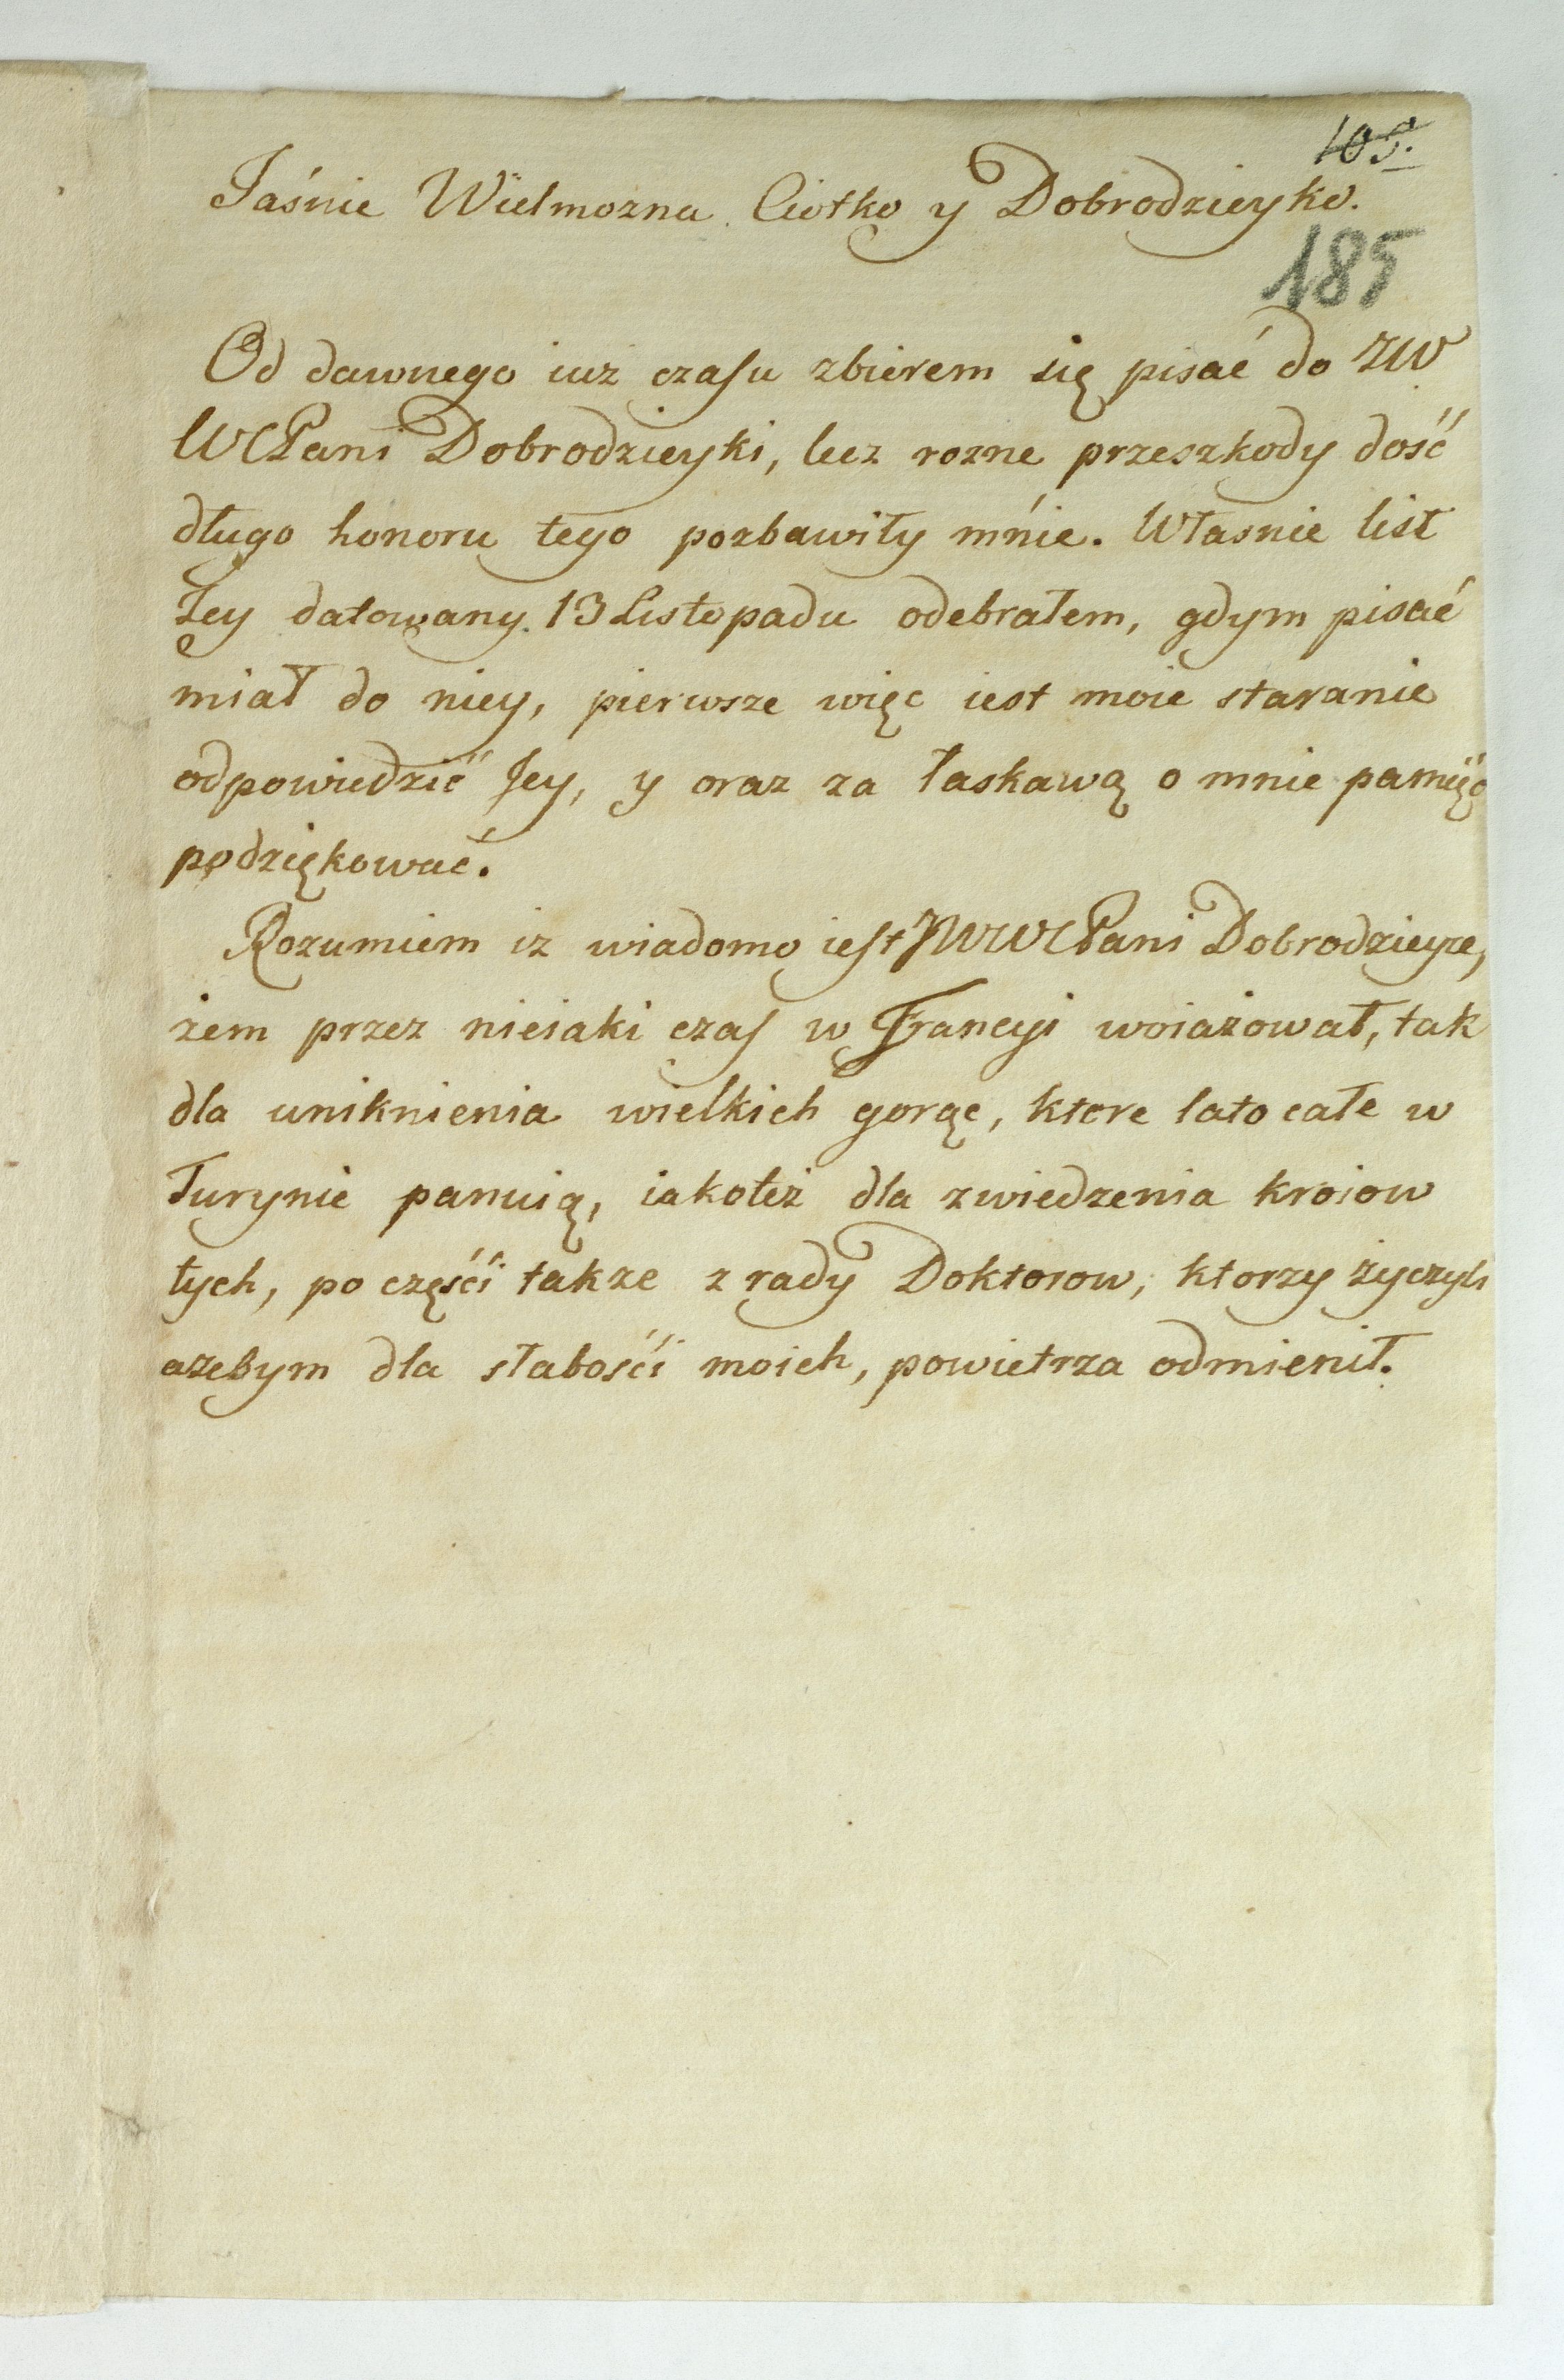 105.
Jaśnie Wielmozna Ciotko y Dobrodzieyko.
185
Od dawnego iuż czasu zbierem się pisać do JW
WCPani Dobrodzieyki, lecz rozne przeszkody dość
długo honoru tego pozbawiły mńie. Własnie list
Jey datowany 13 Listopadu odebrałem, gdym pisać
miał do niey, pierwsze więc iest moie staranie
odpowiedzić Jey, y oraz za łaskawą o mnie pamięć
podziękować.
Rozumiem iz wiadomo iest JWWCPani Dobrodzieyce,
żem przez nieiaki czas w Francyi woiażował, tak
dla uniknienia wielkich gorąc, ktore lato całe w
Turynie panuią, iakoteż dla zwiedzenia kroiow
tych, po części takze z rady Doktorow, ktorzy życzyli
azebym dla słabośći moich, powietrza odmienił.